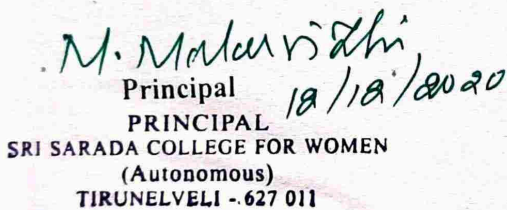 M. Malarvizhi
Principal
12/12/2020
PRINCIPAL
SRI SARADA COLLEGE FOR WOMEN
(Autonomous)
TIRUNELVELI - 627 011